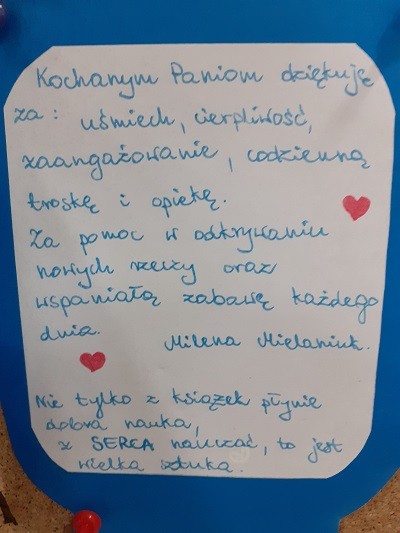 Kochanym Paniom dziękuję
za: uśmiech, cierpliwość,
zaangażowanie, codzienną
troskę i opiekę.
Za pomoc w odkrywaniu
nowych rzeczy oraz
wspaniałą zabawę każdego
dnia.
Milena Mielaniuk.
Nie tylko z książek płynie
dobra nauka,
z SERCA nauczać, to jest
wielka sztuka.